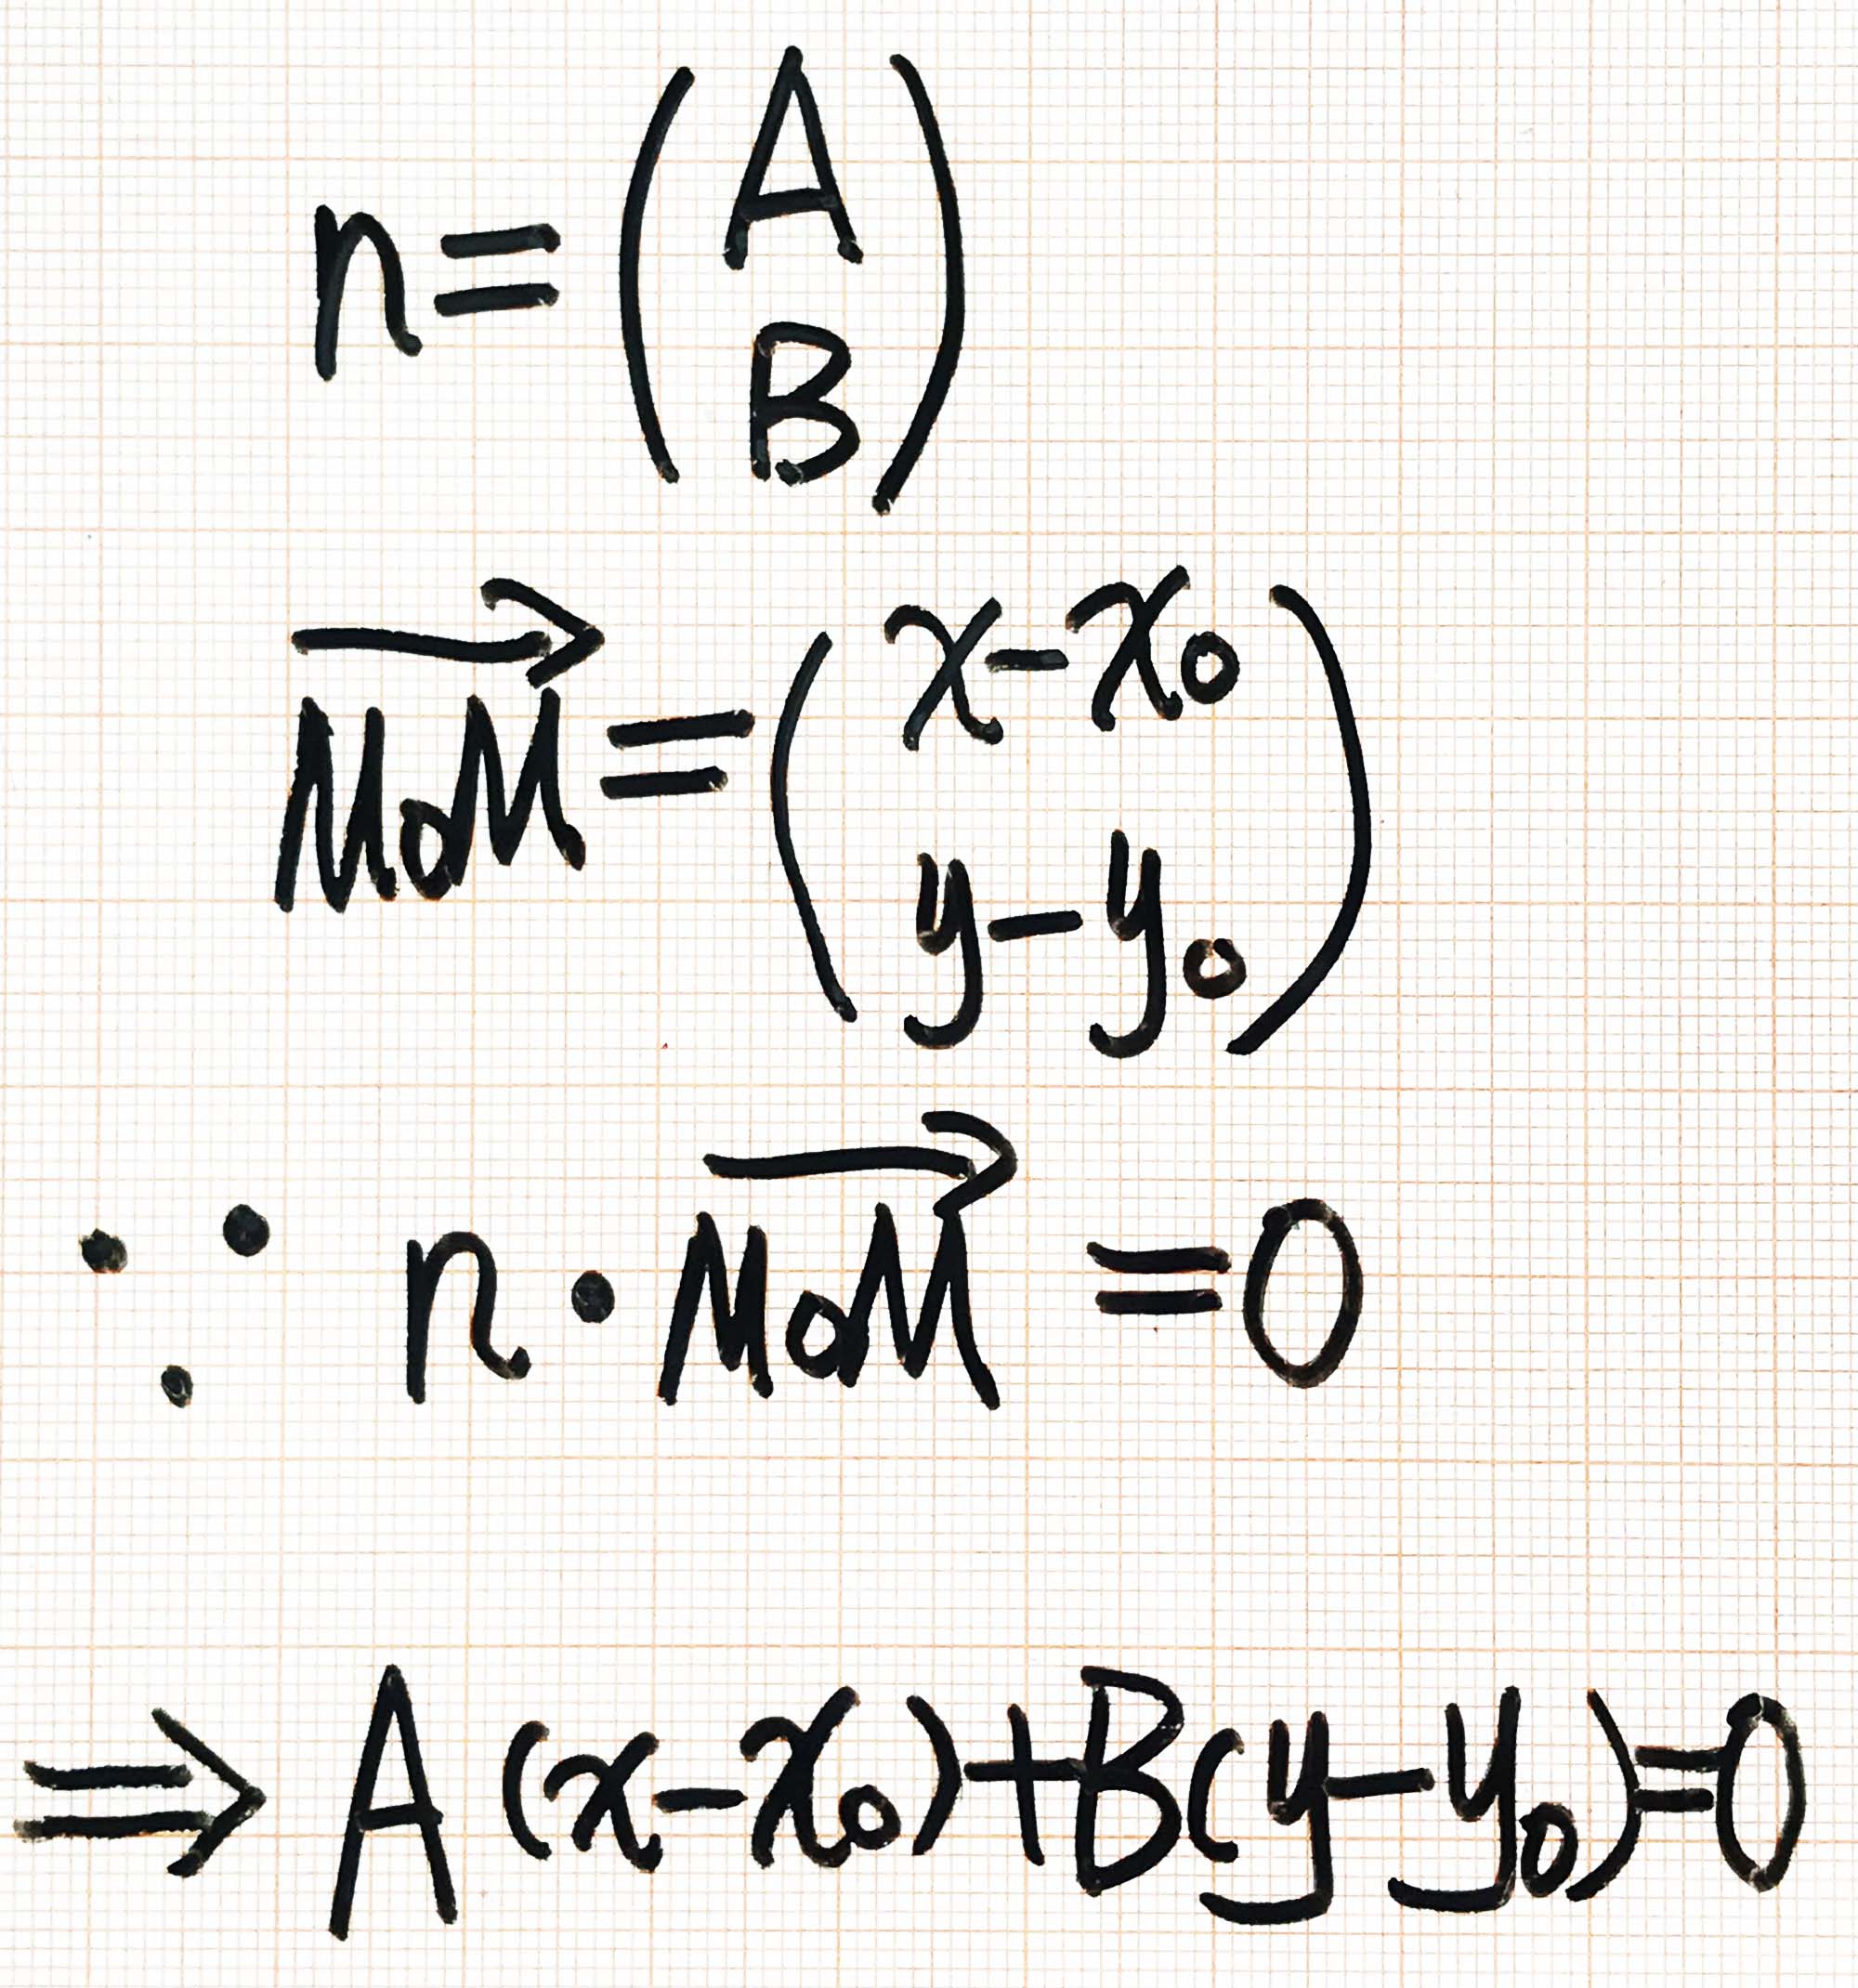 n=(A
B)
→
M₀M=(x-x₀
y-y₀)
∵ n·M₀M⃗ =0
⇒ A(x-x₀)+B(y-y₀)=0